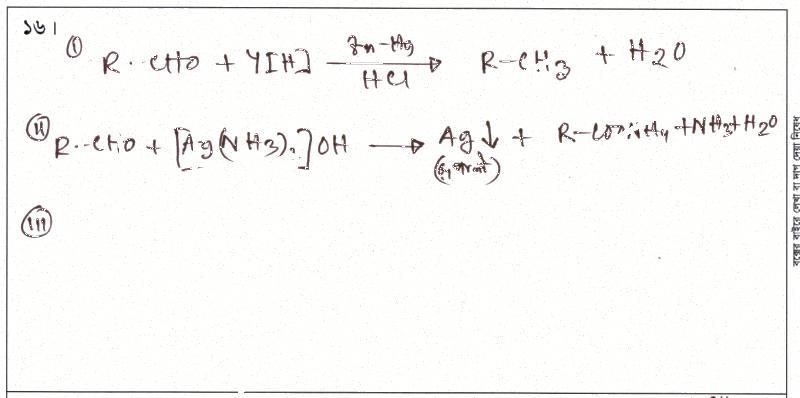 ১৬।
(i) R-CHO + 4[H] Zn-Hg/HCl → R-CH3 + H2O
(ii) R-CHO + [Ag(NH3)2]OH → Ag↓ + R-COONH4 + NH3 + H2O
(iii)
বক্সের বাইরে লেখা বা দাগ দেয়া নিষেধ